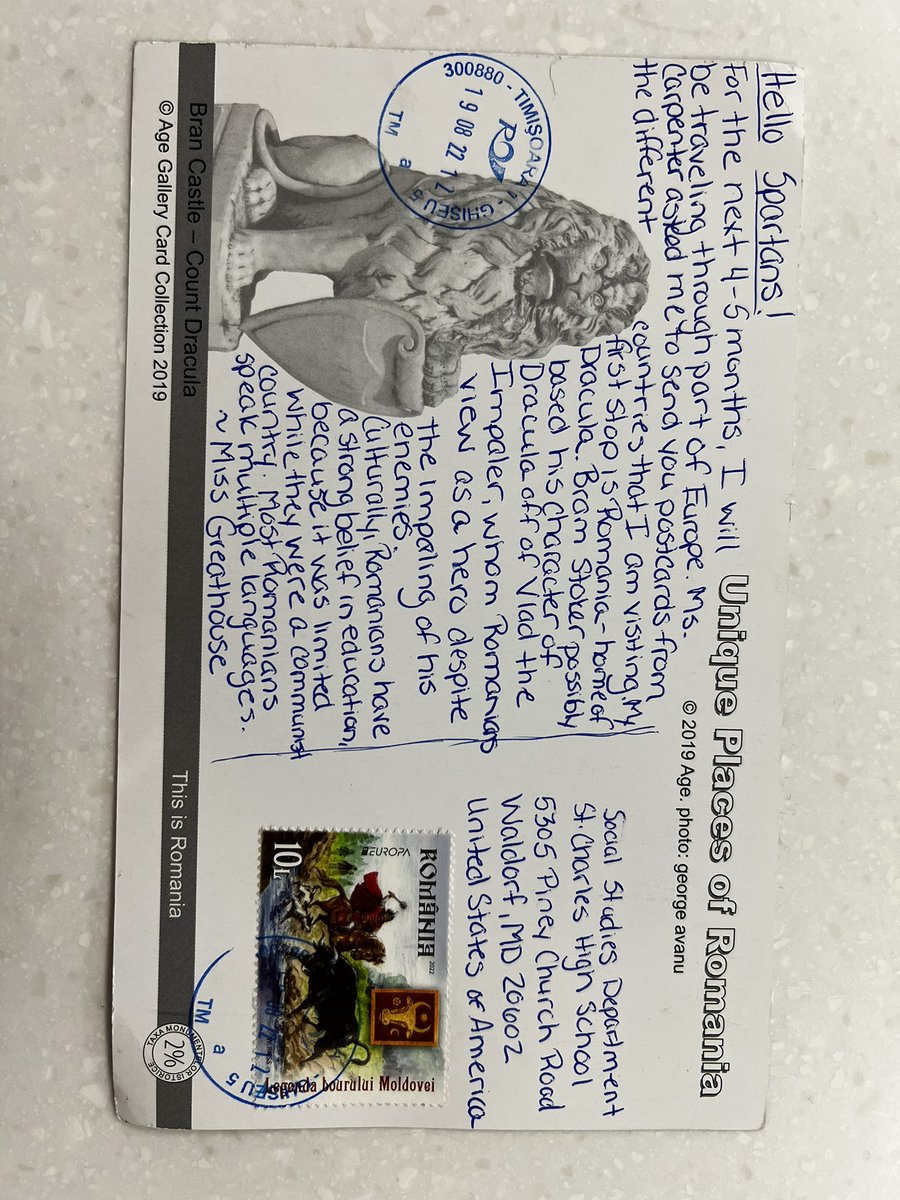 Hello Spartans!
For the next 4-5 months, I will
be traveling through part of Europe. Ms.
Carpenter asked me to send you postcards from
the different
countries that I am visiting. My
first stop is Romania - home of
Dracula. Bram Stoker possibly
based his character of
Dracula off of Vlad the
Impaler, whom Romanians
view as a hero despite
the impaling of his
enemies.
Culturally, Romanians have
a strong belief in education,
because it was limited
while they were a communist
country. Most Romanians
speak multiple languages.
~ Miss Greathouse
Unique Places of Romania
© 2019 Age. photo: george avanu
Social Studies Department
St. Charles High School
5305 Piney Church Road
Waldorf, MD 20602
United States of America
300880 - TIMIȘOARA 1 - GHISEU 5
RO
19 08 22 12
TM a
ROMÂNIA
2022
EUROPA
10L
Legenda bourului Moldovei
08 22 12
GHISEU 5
TM a
TAXA MONUMENTELOR ISTORICE
2%
Bran Castle – Count Dracula
This is Romania
© Age Gallery Card Collection 2019